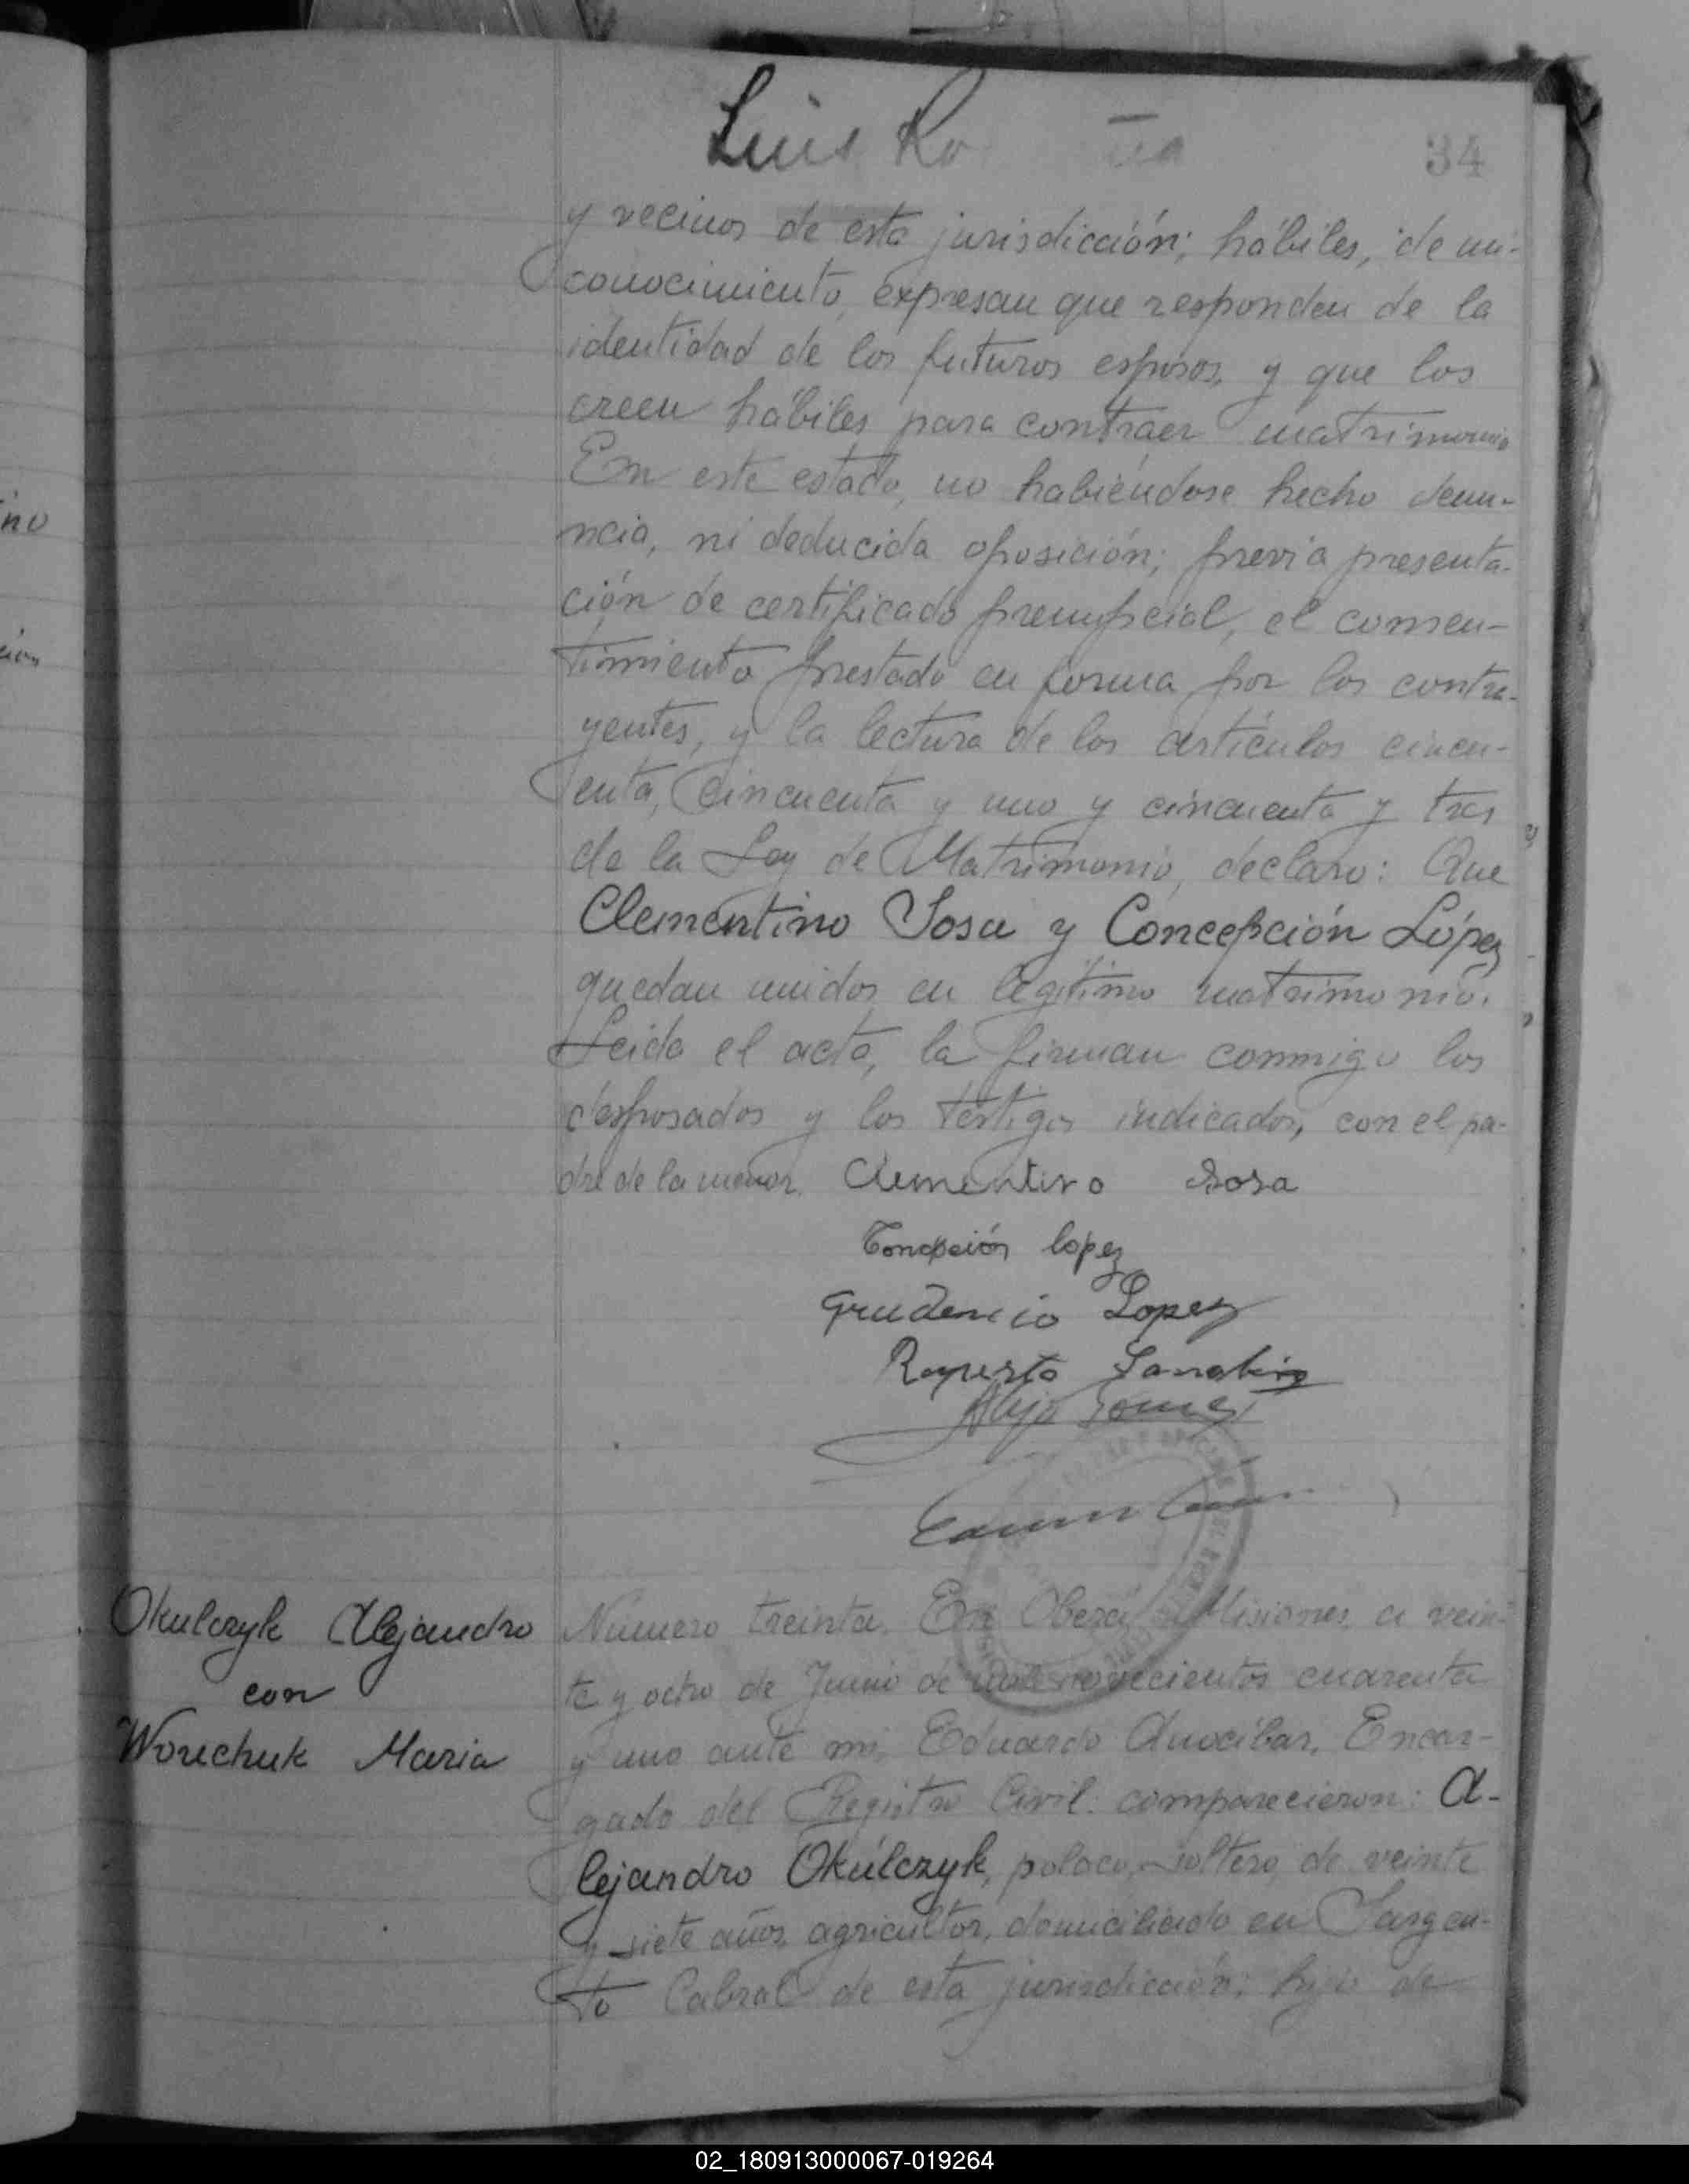 Luis Ro
34
y vecinos de esta jurisdicción; hábiles, de mi
conocimiento, expresan que responden de la
identidad de los futuros esposos, y que los
creen hábiles para contraer matrimonio
En este estado, no habiéndose hecho denun-
ncia, ni deducida oposición; previa presenta-
ción de certificado prenupcial, el consen-
timiento prestado en forma por los contra-
yentes, y la lectura de los artículos cincu-
enta, cincuenta y uno y cincuenta y tres
de la Ley de Matrimonio, declaro: Que
Clementino Sosa y Concepción López
quedan unidos en legítimo matrimonio.
Leida el acta, la firman conmigo los
desposados y los testigos indicados, con el pa-
dre de la menor. Clementino Sosa
Concepción lopez
Prudencio Lopez
Ruperto
Alejo Gomez
Okulczyk Alejandro
con
Wonchuk Maria
Número treinta. En Oberá, Misiones, a vein-
te y ocho de Junio de mil novecientos cuarenta
y uno ante mi, Eduardo Anocíbar, Encar-
gado del Registro Civil: comparecieron: A-
lejandro Okúlczyk, polaco, soltero, de veinte
y siete años, agricultor, domiciliado en Sargen-
to Cabral de esta jurisdicción; hijo de
02_180913000067-019264